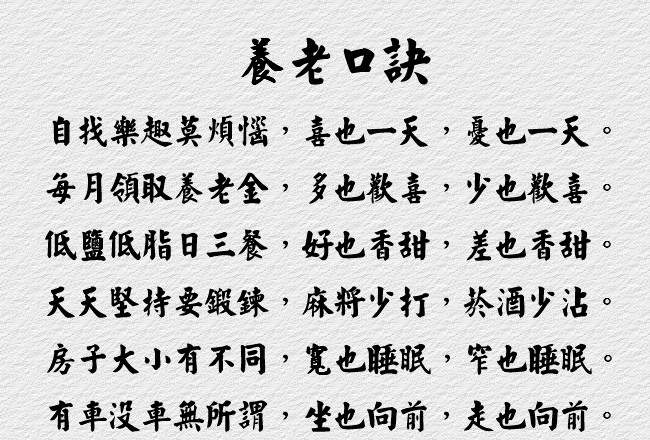 養老口訣
自找樂趣莫煩惱，喜也一天，憂也一天。
每月領取養老金，多也歡喜，少也歡喜。
低鹽低脂日三餐，好也香甜，差也香甜。
天天堅持要鍛鍊，麻將少打，菸酒少沾。
房子大小有不同，寬也睡眠，窄也睡眠。
有車沒車無所謂，坐也向前，走也向前。